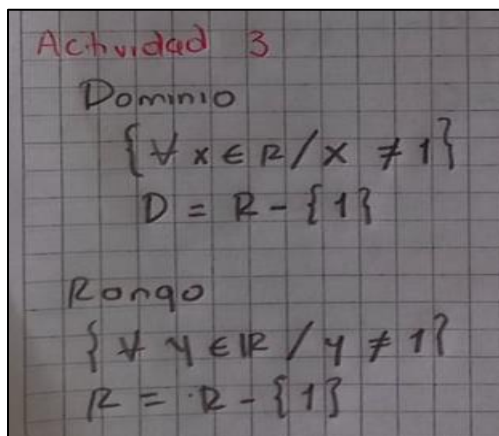 Actividad 3
Dominio
{∀ x ∈ R / x ≠ 1}
D = R - {1}
Rango
{∀ y ∈ R / y ≠ 1}
R = R - {1}